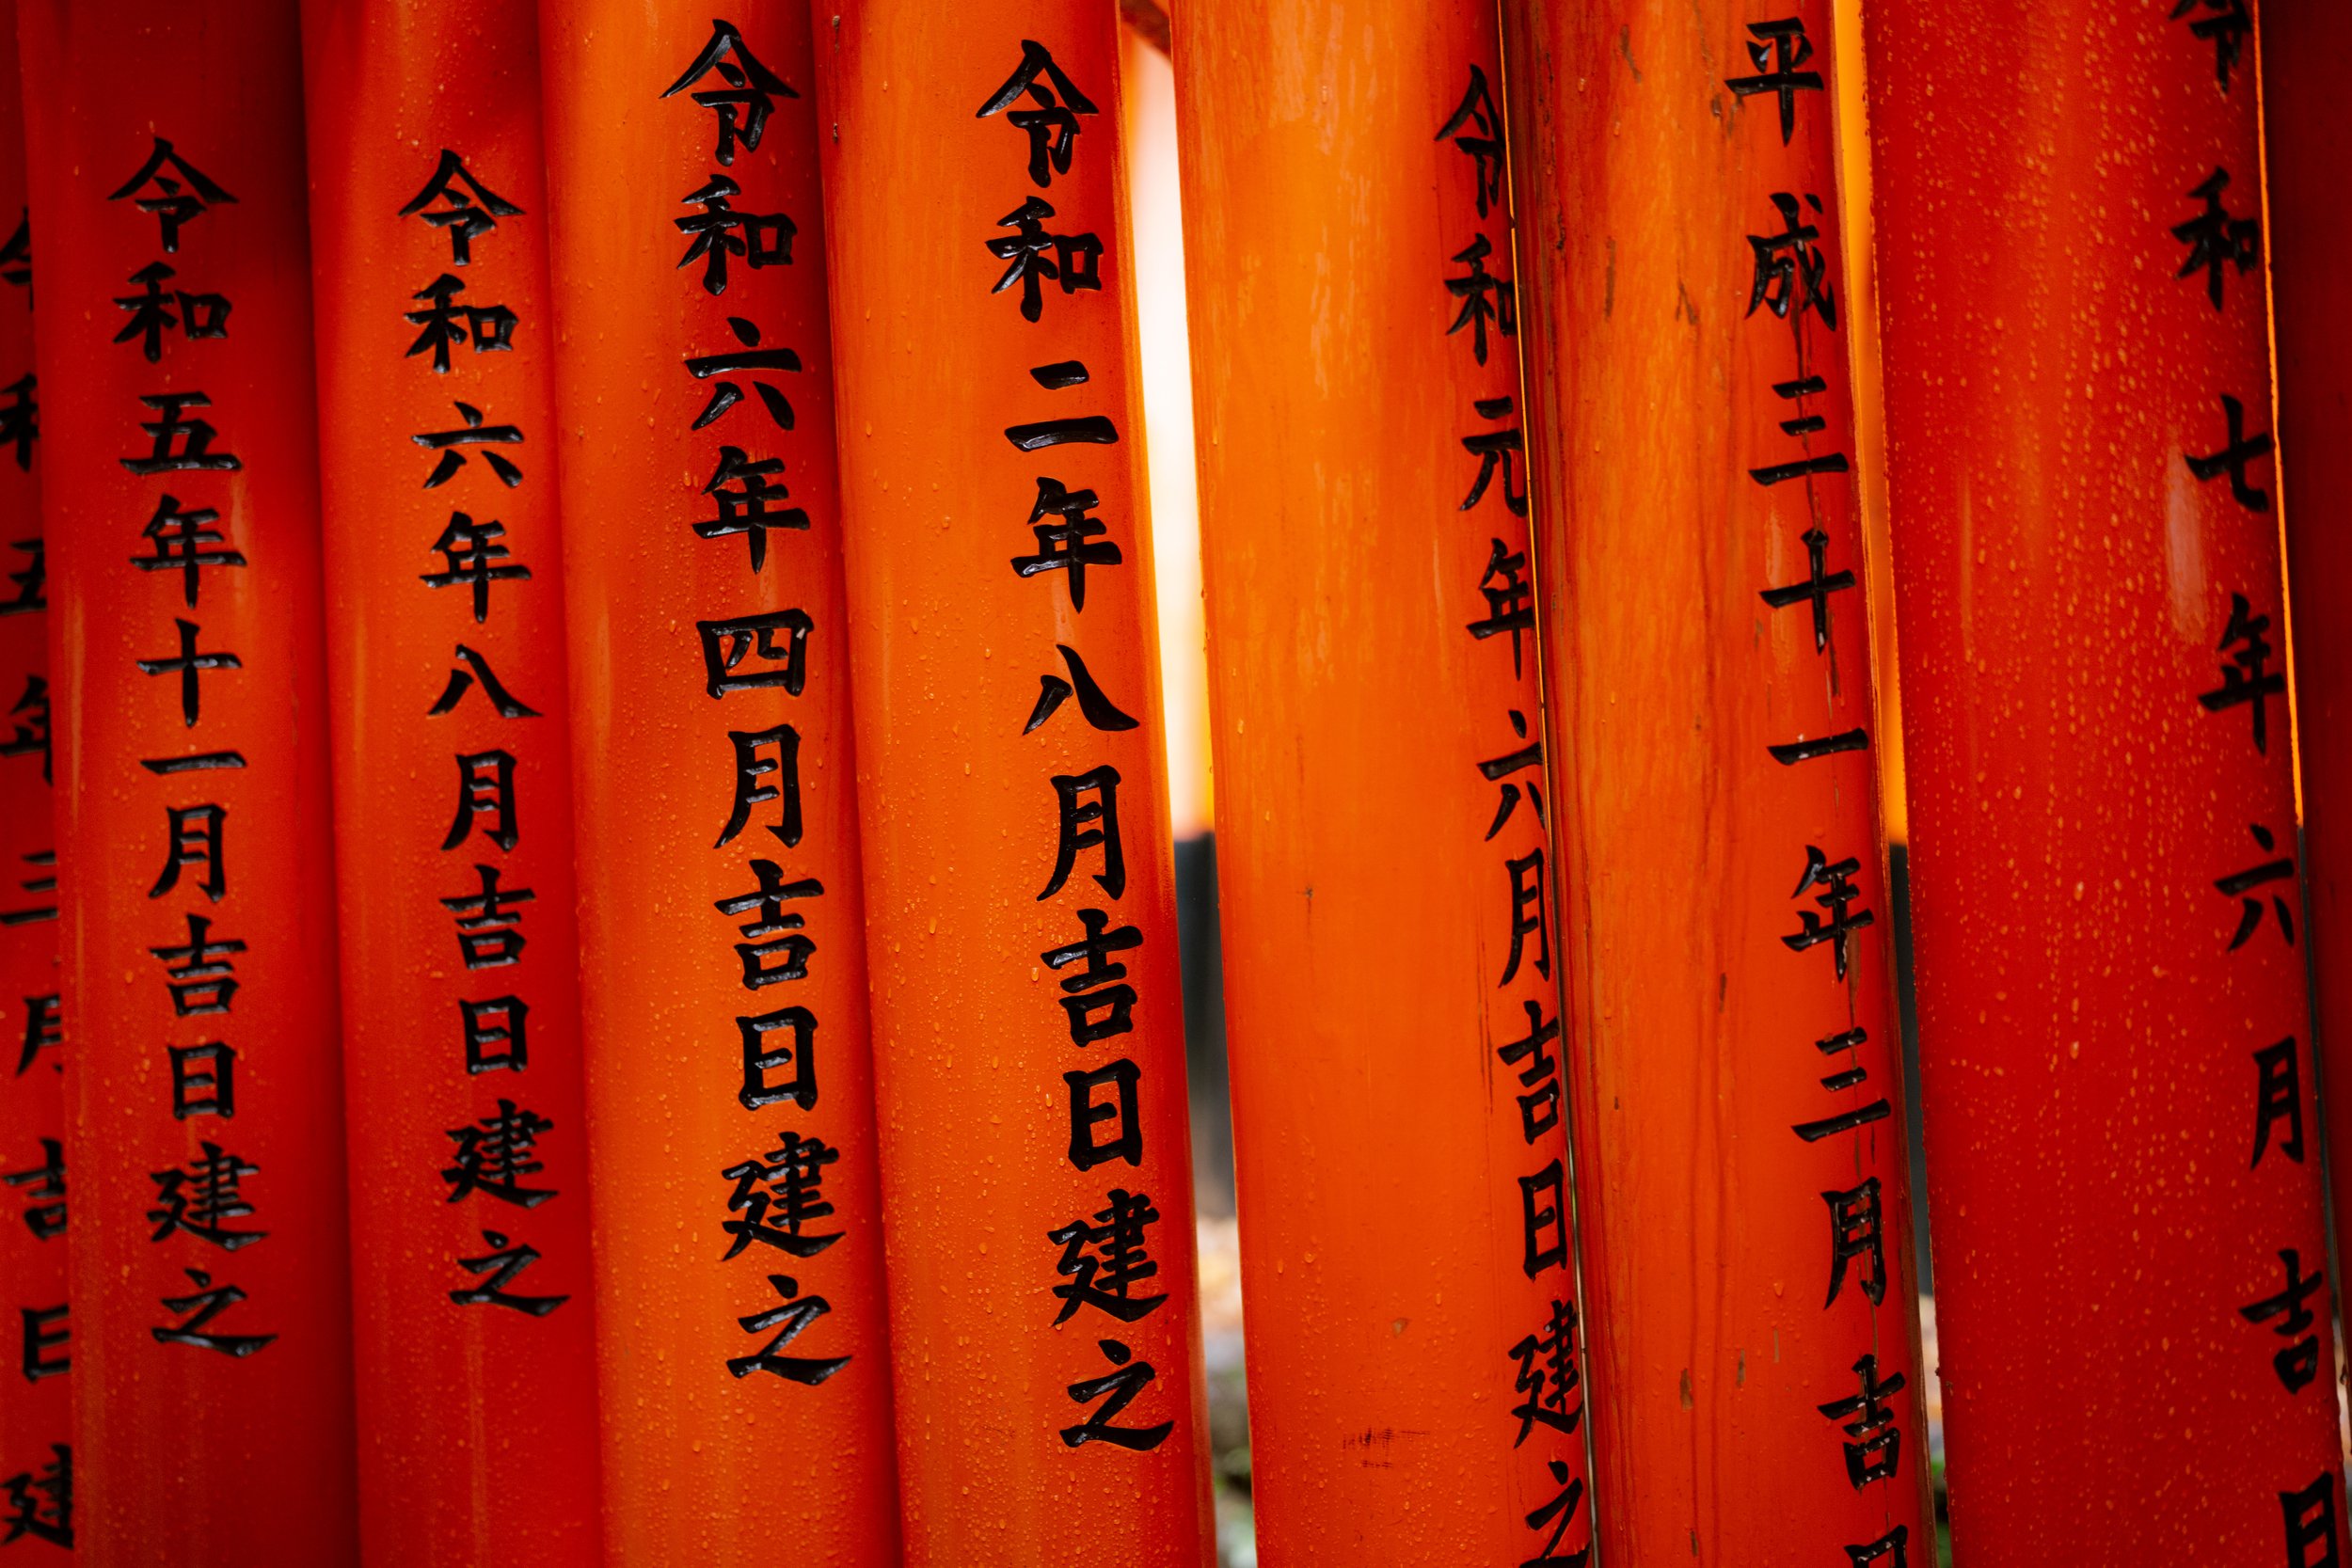 令和七年六月吉日
平成三十一年三月吉日
令和元年六月吉日建之
令和二年八月吉日建之
令和六年四月吉日建之
令和六年八月吉日建之
令和五年十一月吉日建之
令和五年三月吉日建